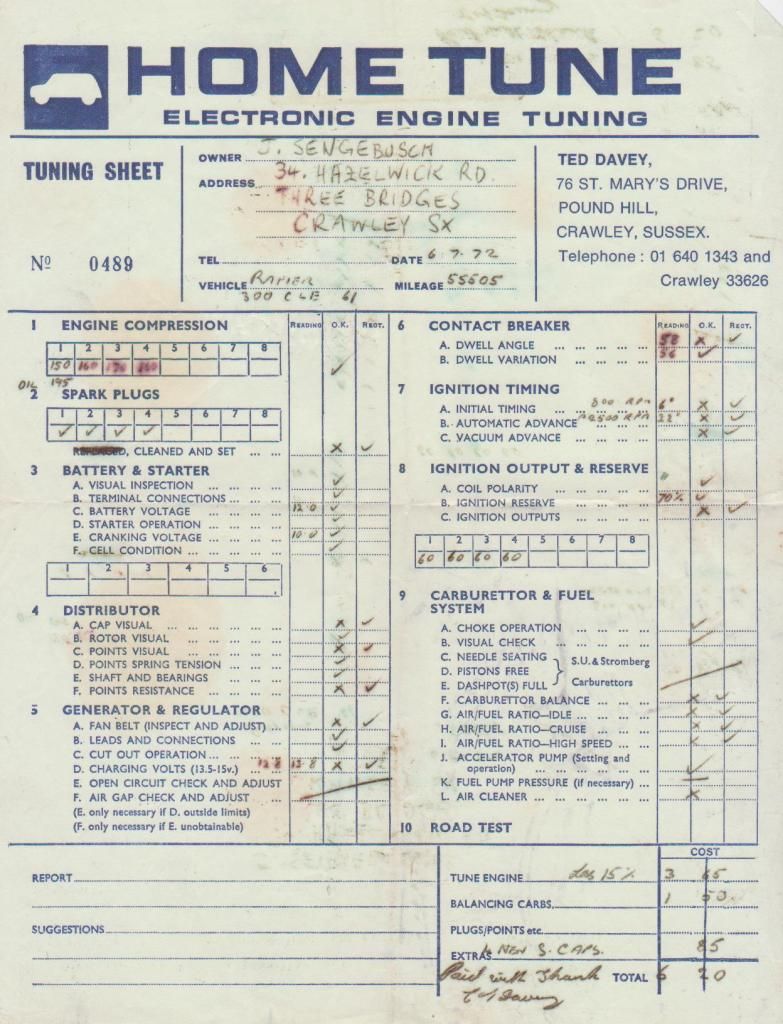 HOME TUNE
ELECTRONIC ENGINE TUNING
TUNING SHEET
Nº 0489
OWNER J. SENGEBUSCH
ADDRESS 34. HAZELWICK RD.
THREE BRIDGES
CRAWLEY SX
TEL DATE 6.7.72
VEHICLE RAPIER MILEAGE 55505
300 CLE 61
TED DAVEY,
76 ST. MARY'S DRIVE,
POUND HILL,
CRAWLEY, SUSSEX.
Telephone : 01 640 1343 and
Crawley 33626
READING O.K. RECT.
1 ENGINE COMPRESSION
1 2 3 4 5 6 7 8
150 160 170 160
OIL 195
2 SPARK PLUGS
1 2 3 4 5 6 7 8
✓ ✓ ✓ ✓
, CLEANED AND SET ... ... X ✓
3 BATTERY & STARTER
A. VISUAL INSPECTION ... ... ... ✓
B. TERMINAL CONNECTIONS ... ... ✓
C. BATTERY VOLTAGE ... ... ... 12.0 ✓
D. STARTER OPERATION ... ... ... ✓
E. CRANKING VOLTAGE ... ... ... 10.0 ✓
F. CELL CONDITION ... ... ... ... ✓
1 2 3 4 5 6
4 DISTRIBUTOR
A. CAP VISUAL ... ... ... ... X ✓
B. ROTOR VISUAL ... ... ... ✓
C. POINTS VISUAL ... ... ... X ✓
D. POINTS SPRING TENSION ... ... ✓
E. SHAFT AND BEARINGS ... ... ✓
F. POINTS RESISTANCE ... ... ... X ✓
5 GENERATOR & REGULATOR
A. FAN BELT (INSPECT AND ADJUST) ... X ✓
B. LEADS AND CONNECTIONS ... ... ✓
C. CUT OUT OPERATION ... ... ... ✓
D. CHARGING VOLTS (13.5-15v.) ... 12.8 13.8 X ✓
E. OPEN CIRCUIT CHECK AND ADJUST
F. AIR GAP CHECK AND ADJUST ... ...
(E. only necessary if D. outside limits)
(F. only necessary if E. unobtainable)
READING O.K. RECT.
6 CONTACT BREAKER
A. DWELL ANGLE ... ... ... ... 58 X ✓
B. DWELL VARIATION ... ... ... 56 ✓
7 IGNITION TIMING
A. INITIAL TIMING ... 800 RPM 6° X ✓
B. AUTOMATIC ADVANCE 2500 RPM 22° X ✓
C. VACUUM ADVANCE ... ... ... X ✓
8 IGNITION OUTPUT & RESERVE
A. COIL POLARITY ... ... ... ... ✓
B. IGNITION RESERVE ... ... ... 70% ✓
C. IGNITION OUTPUTS ... ... ... X ✓
1 2 3 4 5 6 7 8
60 60 60 60
9 CARBURETTOR & FUEL
SYSTEM
A. CHOKE OPERATION ... ... ... ✓
B. VISUAL CHECK ... ... ... ... ✓
C. NEEDLE SEATING
D. PISTONS FREE
E. DASHPOT(S) FULL
S.U. & Stromberg
Carburettors
F. CARBURETTOR BALANCE ... ... X ✓
G. AIR/FUEL RATIO—IDLE ... ... ... X ✓
H. AIR/FUEL RATIO—CRUISE ... ... X ✓
I. AIR/FUEL RATIO—HIGH SPEED ... ... X ✓
J. ACCELERATOR PUMP (Setting and
operation) ... ... ... ... ✓
K. FUEL PUMP PRESSURE (if necessary) ...
L. AIR CLEANER ... ... ... ... X
10 ROAD TEST
REPORT
SUGGESTIONS
COST
TUNE ENGINE Les 15% 3 65
BALANCING CARBS. 1 50
PLUGS/POINTS etc.
EXTRAS 4 NEW S. CAPS. 85
Paid with Thanks TOTAL 6 20